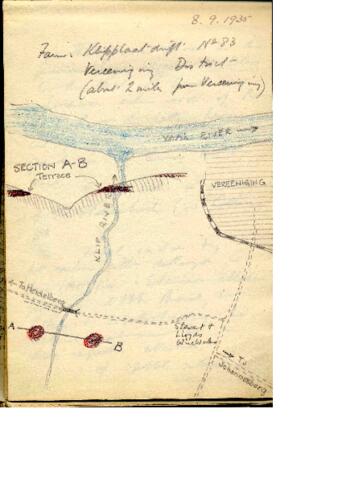 8.9.1935
Farm: Klipplaatdrift No 83
Vereeniging District
(about 2 miles from Vereeniging)
VAAL RIVER
SECTION A-B
Terrace
VEREENIGING
KLIP RIVER
To Heidelberg
Stewart &
Lloyds
A
B
To
Johannesburg